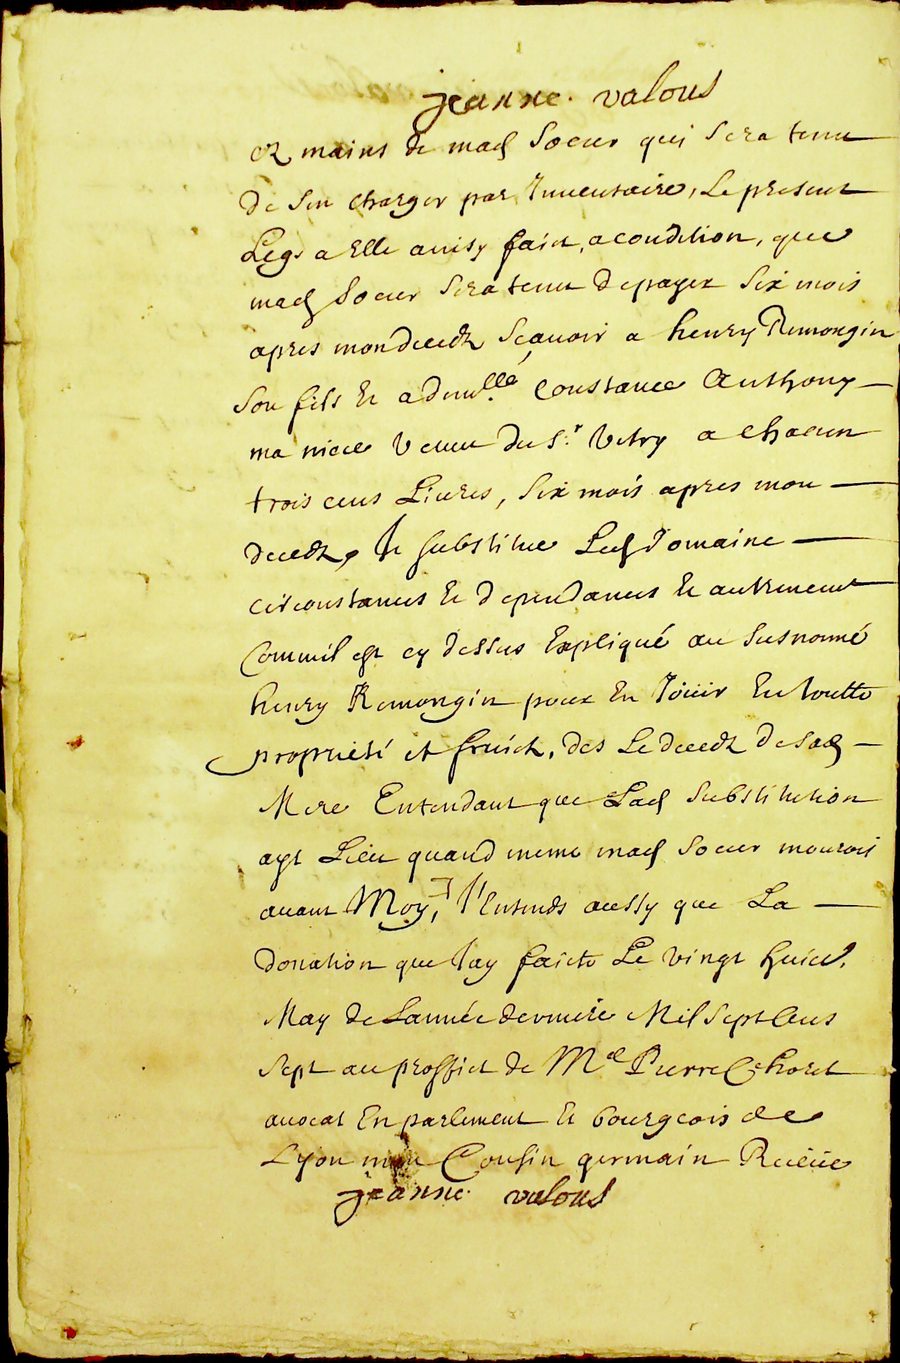 jeanne. valous
ez mains de mad soeur qui sera tenu
de sen charger par Inuentaire, Le present
Legs a Elle ainsy faict, a condition, que
mad soeur sera tenu de payer six mois
apres mon decedz scauoir a henry Remongin
son fils Et a demlle. Constance Anthony
ma niece veuue du Sr. Vitry a chacun
trois cens Liures, six mois apres mon
decedz, Je substitue Led Domaine
circonstances Et dependances Et autrement
Comm'il est cy dessus Expliqué au susnomé
henry Remongin pour En Joüir En toutte
proprieté et fruict, des Le decedz de sad
Mere Entendant que Lad substitution
ayt Lieu quand meme mad soeur mouroit
auant Moy, J'Entends aussy que La
donation que Jay faicte Le vingt huict.
May de Lannée derniere Mil Sept Cens
Sept au proffict de Me Pierre Choret
auocat En parlement Et bourgeois de
Lyon mon Cousin germain Recüe
jeanne. valous